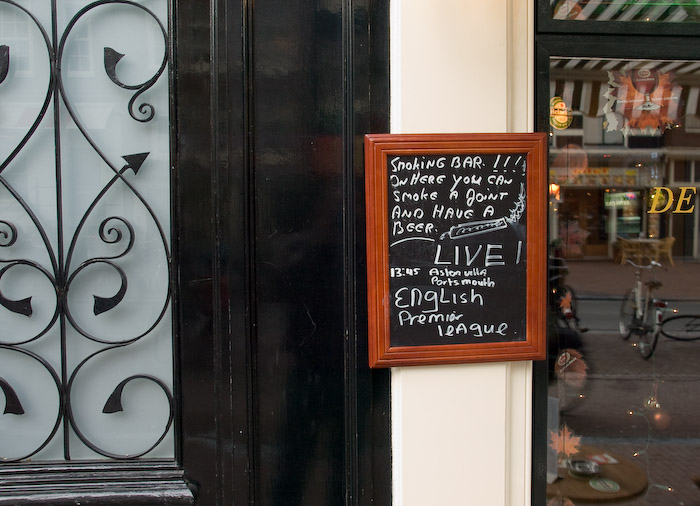 SMOKING BAR. !!!!
IN HERE YOU CAN
SMOKE A JOINT
AND HAVE A
BEER.
LIVE!
13:45 Aston villa
Portsmouth
ENGLISH
PREMIER
LEAGUE
DE